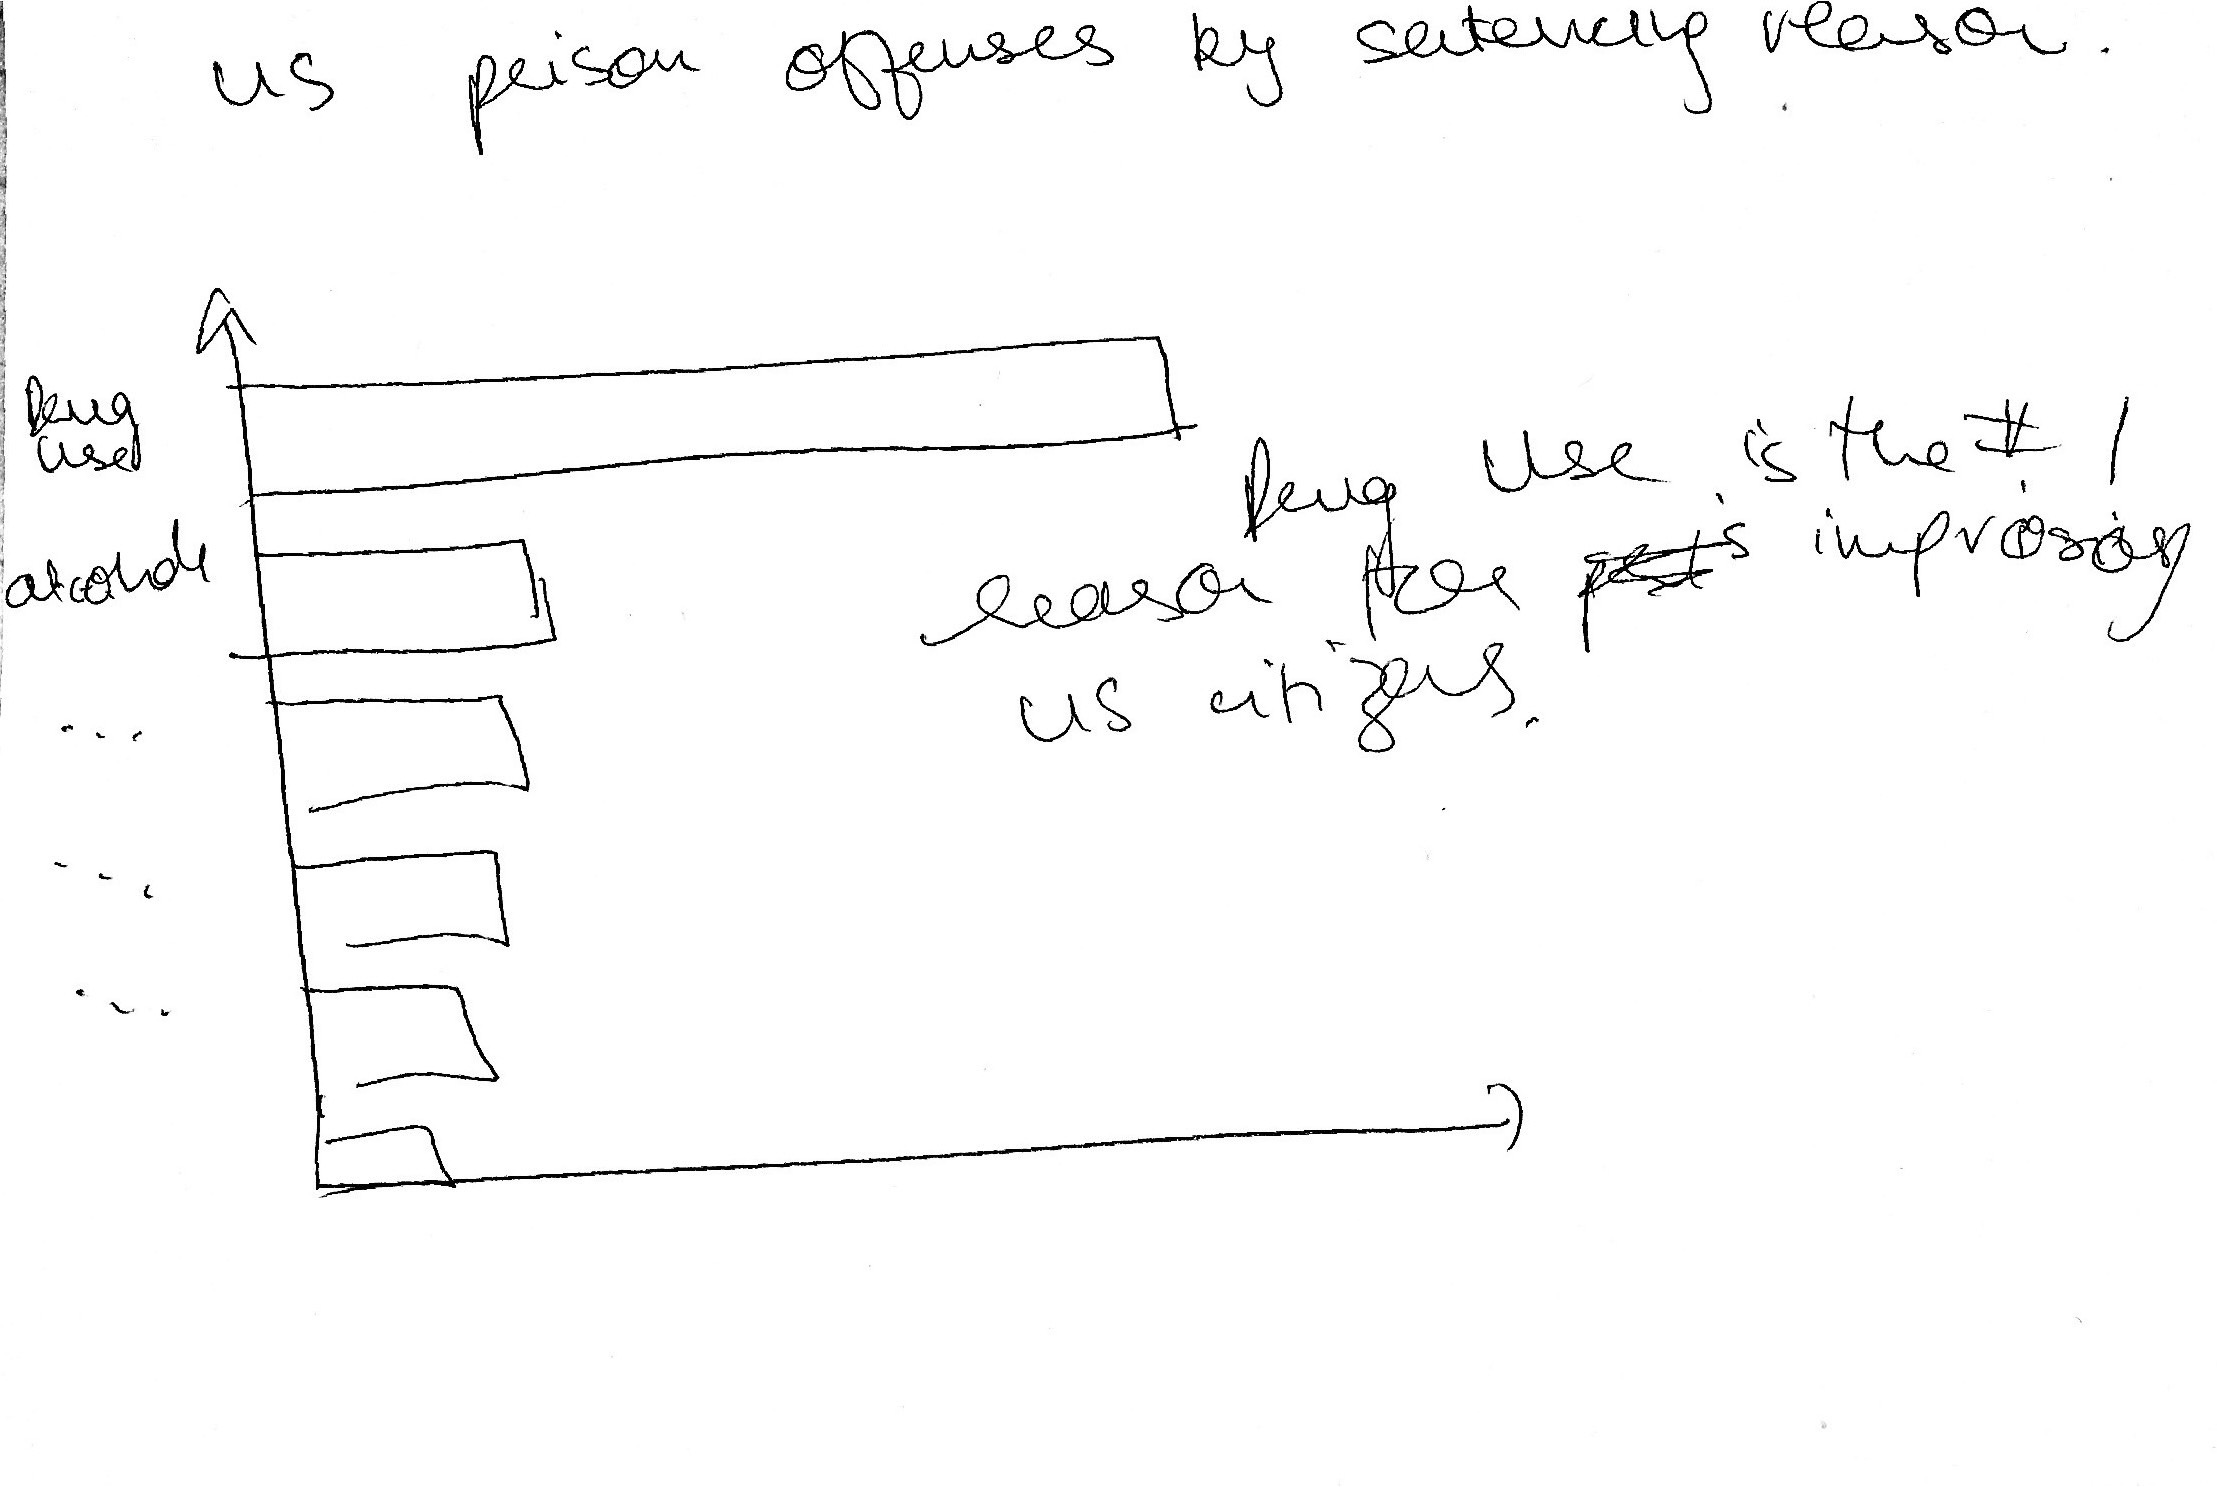 US prison offenses by sentencing reason.
Drug
use
alcohol
Drug use is the #1
reason for improsiosy
US citizens.
...
...
...